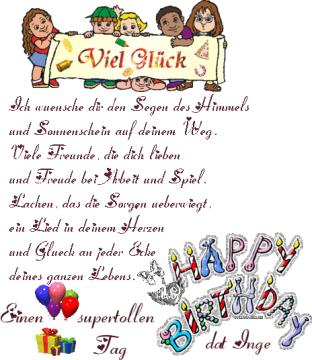 Viel Glück
Ich wuensche dir den Segen des Himmels
und Sonnenschein auf deinem Weg.
Viele Freunde, die dich lieben
und Freude bei Arbeit und Spiel.
Lachen, das die Sorgen ueberwiegt,
ein Lied in deinem Herzen
und Glueck an jeder Ecke
deines ganzen Lebens.
HAPPY
BIRTHDAY
Einen supertollen
Tag
dat Inge